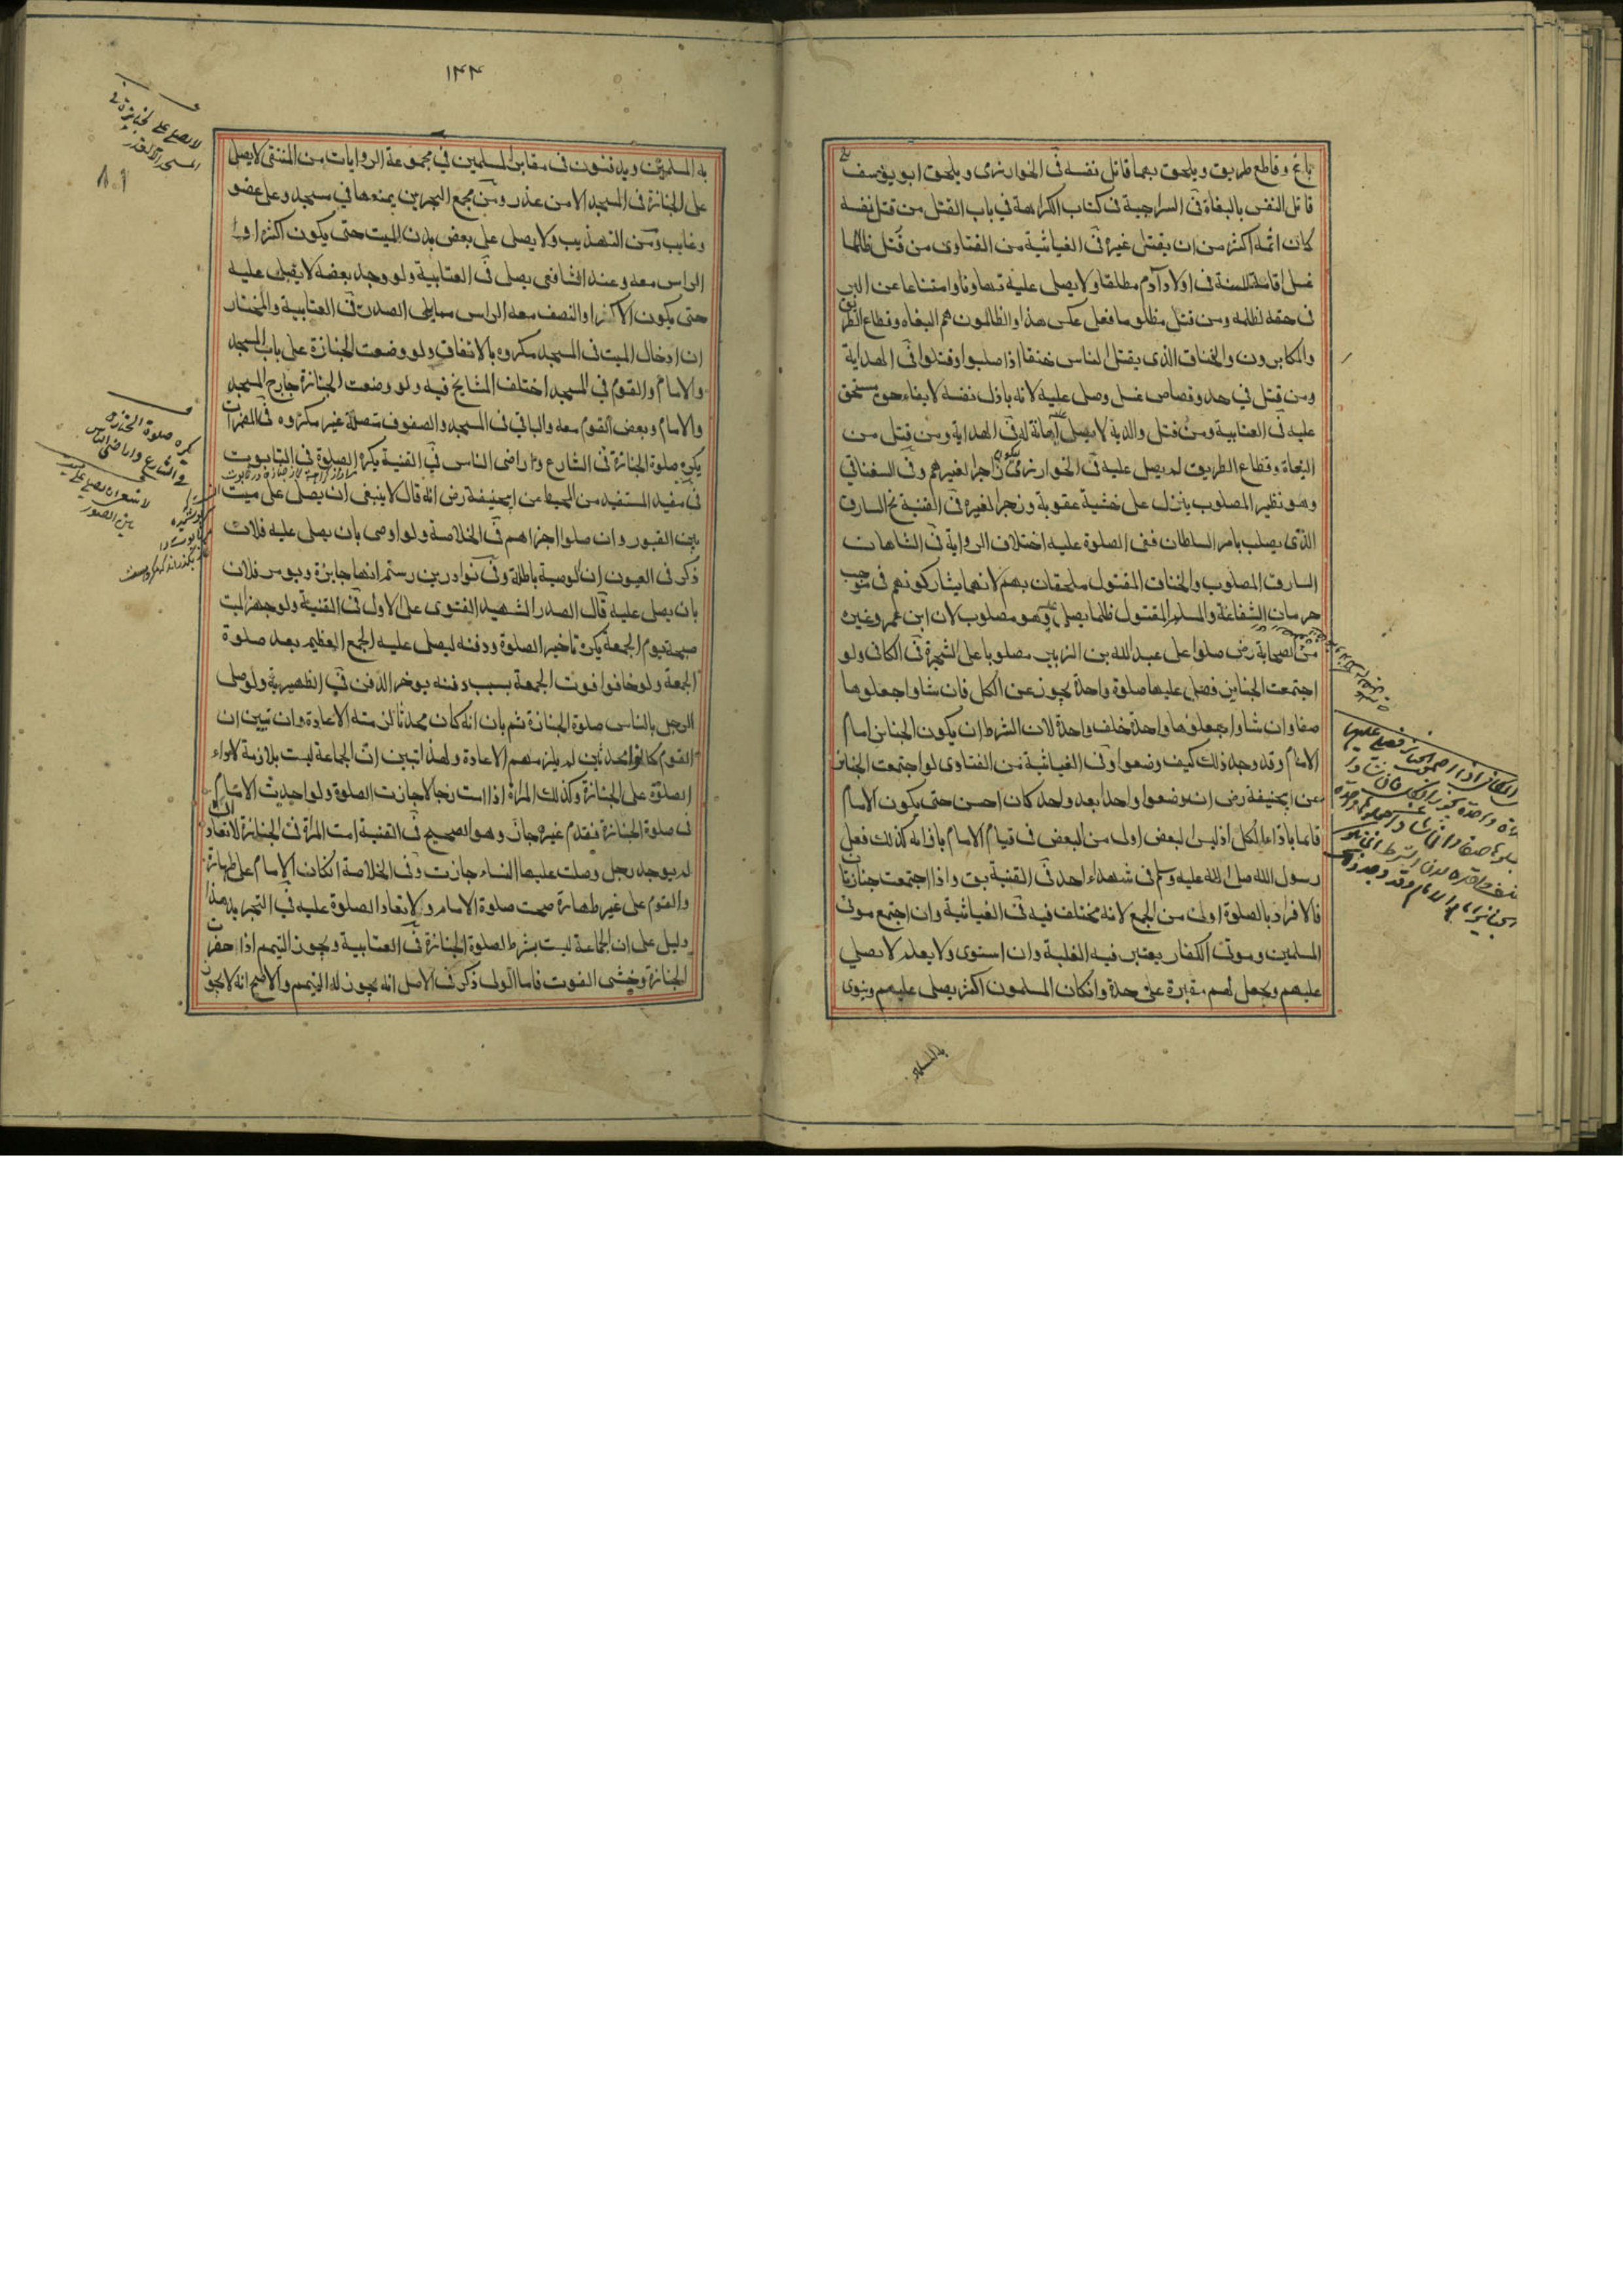 باغ وقاطع طريق ويلحق بهما قاتل نفسه في الخوارزمى ويلحق ابو يوسف
قاتل النفس بالبغاة في السراجية في كتاب الكراهة في باب القتل من قتل نفسه
كان اثمه اكثر من ان يقتل غيره في الغياثية من الفتاوى من قتل ظالما
غسل اقامة للسنة في اولاد آدم مطلقا ولا يصلى عليه تهاونا وامتناعا عن البر
في حقه لظلمه ومن قتل مظلوما فعلى عكس هذا والظالمون هم البغاه وقطاع الطريق
والمكابرون والخناق الذى يقتل الناس خنقا اذا صلبوا وقتلوا في الهداية
ومن قتل في حد وقصاص غسل وصلى عليه لانه باذل نفسه لايفاء حق مستحق
عليه في العتابية ومن قتل والديه لا يصلى عليه اهانة له في الهداية ومن قتل من
البغاة وقطاع الطريق لم يصل عليه في الخوارزمى ليكون زاجرا لغيرهم وفي السغناقي
وهو نظير المصلوب ينزل على خشبة عقوبة وزجرا لغيره في القنية نج السارق
الذى يصلب بامر السلطان ففى الصلوة عليه اختلاف الرواية في الشاهان
السارق المصلوب والخناق المقتول ملحقان بهم لانهما يشاركونهم في موجب
حرمان الشفاعة والمسلم المقتول ظلما يصلى عليه وهو مصلوب لان ابن عمر وغيره
من الصحابة رض صلوا على عبد الله بن الزبير مصلوبا على الشجرة في الكافى ولو
اجتمعت الجنايز فصلى عليها صلوة واحدة يجوز عن الكل فان شاوا جعلوها
صفا وان شاوا جعلوها واحدة خلف واحدة لان الشرط ان يكون الجنايز امام
الامام وقد وجد ذلك كيف وضعوا وفى الغياثية من الفتاوى لو اجتمعت الجنائز
عن ابيحنيفة رض ان وضعوا واحدا بعد واحد كان احسن حتى يكون الامام
قائما باذاء الكل اذ ليس البعض اولى من البعض في قيام الامام باذائه كذلك فعل
رسول الله صلى الله عليه وسلم في شهداء احد في القنية بق واذا اجتمعت جنازتان
فالافراد بالصلوة اولى من الجمع لانه مختلف فيه في الغياثية وان اجتمع موتى
المسلمين وموتى الكفار يعتبر فيه الغلبة وان استوى ولا يعلم لا يصلي
عليهم ويجعل لهم مقبرة على حدة وانكان المسلمون اكثر يصلى عليهم وينوى
به المسلمين
١٣٣
به المسلمين ويدفنون في مقابر المسلمين في مجموعة الروايات من المنتقى لا يصلى
على الجنازة في المسجد الا من عذر ومن مجمع البحرين يمنعوها في مسجد وعلى عضو
وغايب ومن التهذيب ولا يصلى على بعض بدن الميت حتى يكون اكثر او
الراس معه وعند الشافعى يصلى في العتابية ولو وجد بعضه لا يصلى عليه
حتى يكون الاكثر او النصف معه الراس في العتابية والمختار
ان ادخال الميت في المسجد مكروه بالاتفاق ولو وضعت الجنازة على باب المسجد
والامام والقوم في المسجد اختلف المشايخ فيه ولو وضعت الجنازة خارج المسجد
والامام وبعض القوم معه والباقي في المسجد والصفوف متصلة غير مكروه في المضمرات
يكره صلوة الجنازة في الشارع واراضى الناس في القنية يكره الصلوة في التابوت
في مفيد المستفيد من المحيط عن ابيحنيفة رض انه قال لا ينبغى ان يصلى على ميت
بين القبور وان صلوا اجزاهم في الخلاصة ولو اوصى بان يصلى عليه فلان
ذكر في العيون ان الوصية باطلة وفى نوادر بن رستم انها جايزة ويومر فلان
بان يصلى عليه قال الصدر الشهيد الفتوى على الاول في القنية ولو جهز الميت
صبيحة يوم الجمعة يكره تاخير الصلوة ودفنه ليصلى عليه الجمع العظيم بعد صلوة
الجمعة ولو خافوا فوت الجمعة بسبب دفنه يوخر الدفن في الظهيرية ولو صلى
الرجل بالناس صلوة الجنازة ثم بان انه كان محدثا لزمته الاعادة وان تبين ان
القوم كانوا محدثين لم يلزمهم الاعادة ولهذا تبين ان الجماعة ليست بلازمة لاداء
الصلوة على الجنازة وكذلك المراة اذا امت رجالا جازت الصلوة ولو احدث الامام
في صلوة الجنازة فقدم غيره جاز وهو الصحيح في القنية امت المراة في الجنازة لا تعاد
لم يوجد رجل وصلت عليها النساء جازت وفى الخلاصة انكان الامام على طهارة
والقوم على غير طهارة صحت صلوة الامام ولا تعاد الصلوة عليه في التجريد هذا
دليل على ان الجماعة ليست بشرط لصلوة الجنازة في العتابية ويجوز التيمم اذا حضرت
الجنازة وخشى الفوت فاما الولى ذكر في الاصل انه يجوز له التيمم والاصح انه لا يجوز
لا يصلى على الجنازة في
المسجد الا لعذر
يكره صلوة الجنازه
في الشارع واراضى الناس